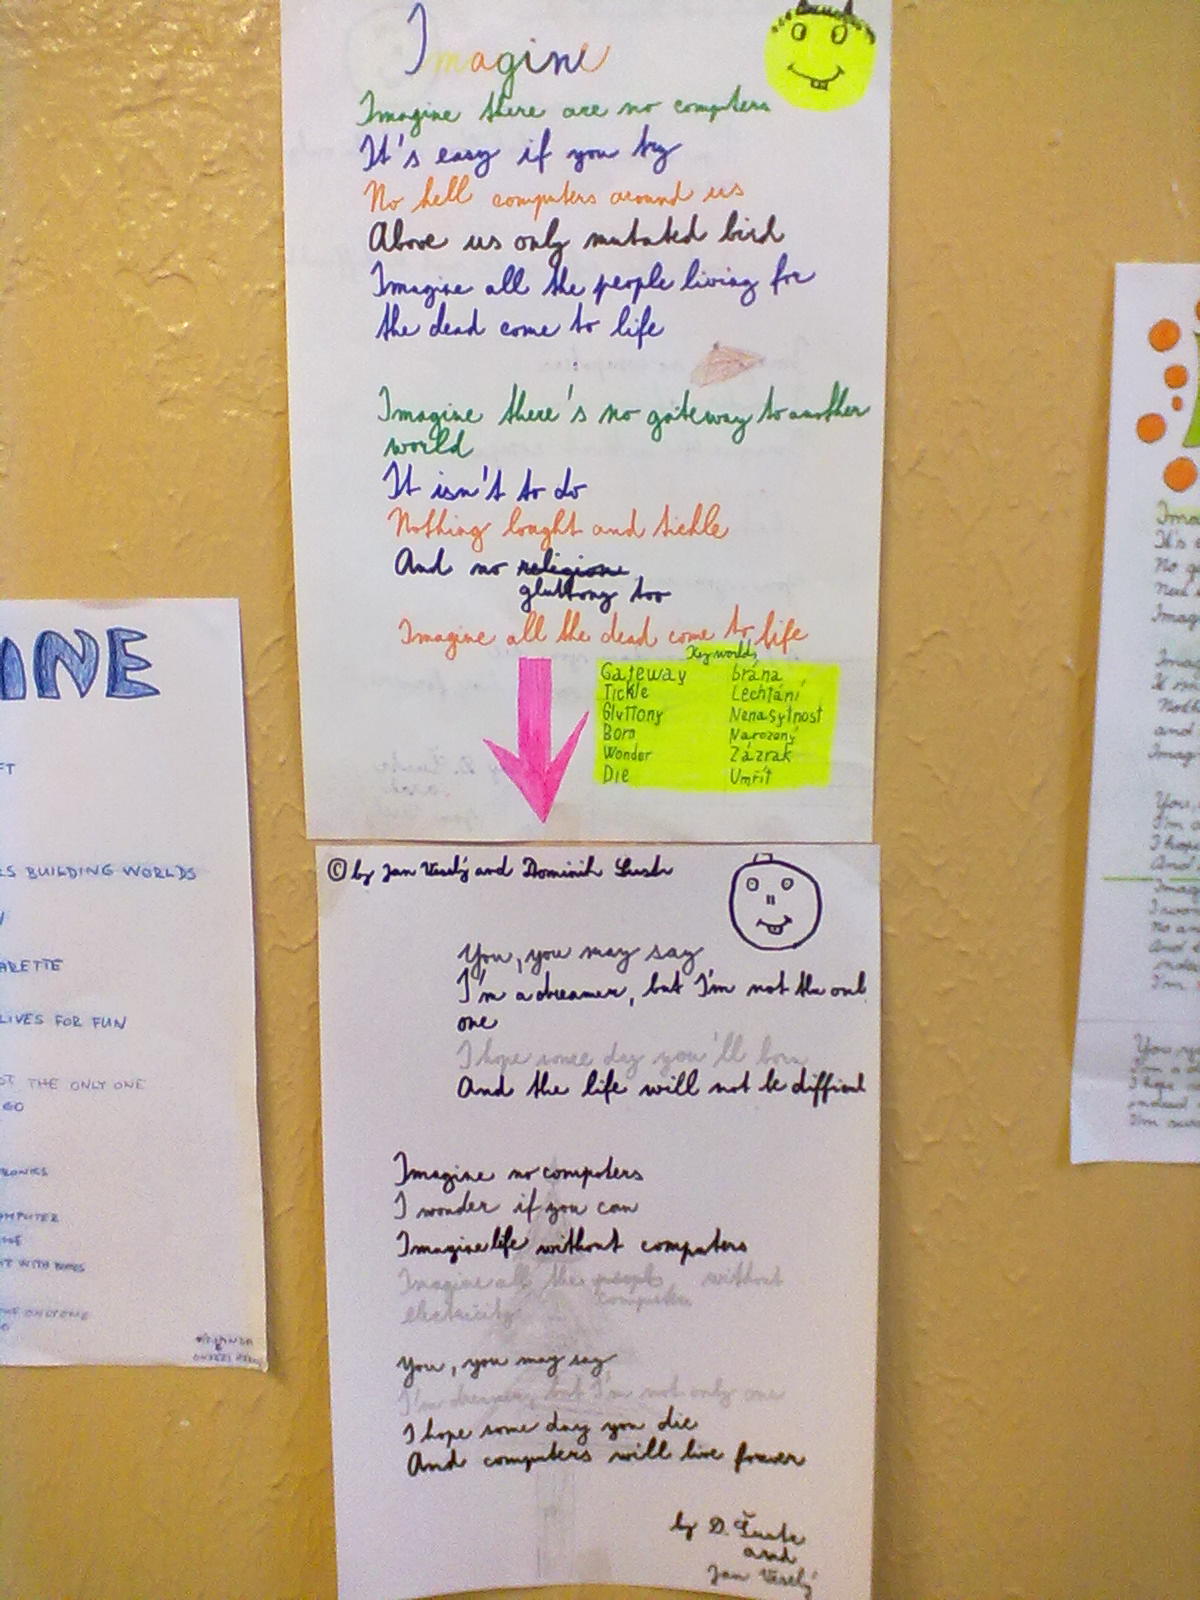 Imagine
Imagine there are no computers
It's easy if you try
No hell computers around us
Above us only mutated bird
Imagine all the people living for
the dead come to life
Imagine there's no gateway to another
world
It isn't to do
Nothing lought and tickle
And no religione
gluttony too
Imagine all the dead come to life
Key worlds
Gateway brána
Tickle Lechtání
Gluttony Nenasytnost
Born Narozený
Wonder Zázrak
Die Umřít
© by Jan Veselý and Dominik
You, you may say
I'm a dreamer, but I'm not the onl
one
I hope some day you'll born
And the life will not be difficul
Imagine no computers
I wonder if you can
Imagine life without computers
Imagine all the people without
electricity computers
You, you may say
I'm dreamer, but I'm not only one
I hope some day you die
And computers will live forever
by D.
and
Jan Veselý
INE
FT
RS BUILDING WORLDS
ARETTE
LIVES FOR FUN
OT THE ONLY ONE
GO
TRONICS
OMPUTER
THE ONLY ONE
Imag
It's e
No
Imagi
and
Imag
You,
I'm
I hope
And